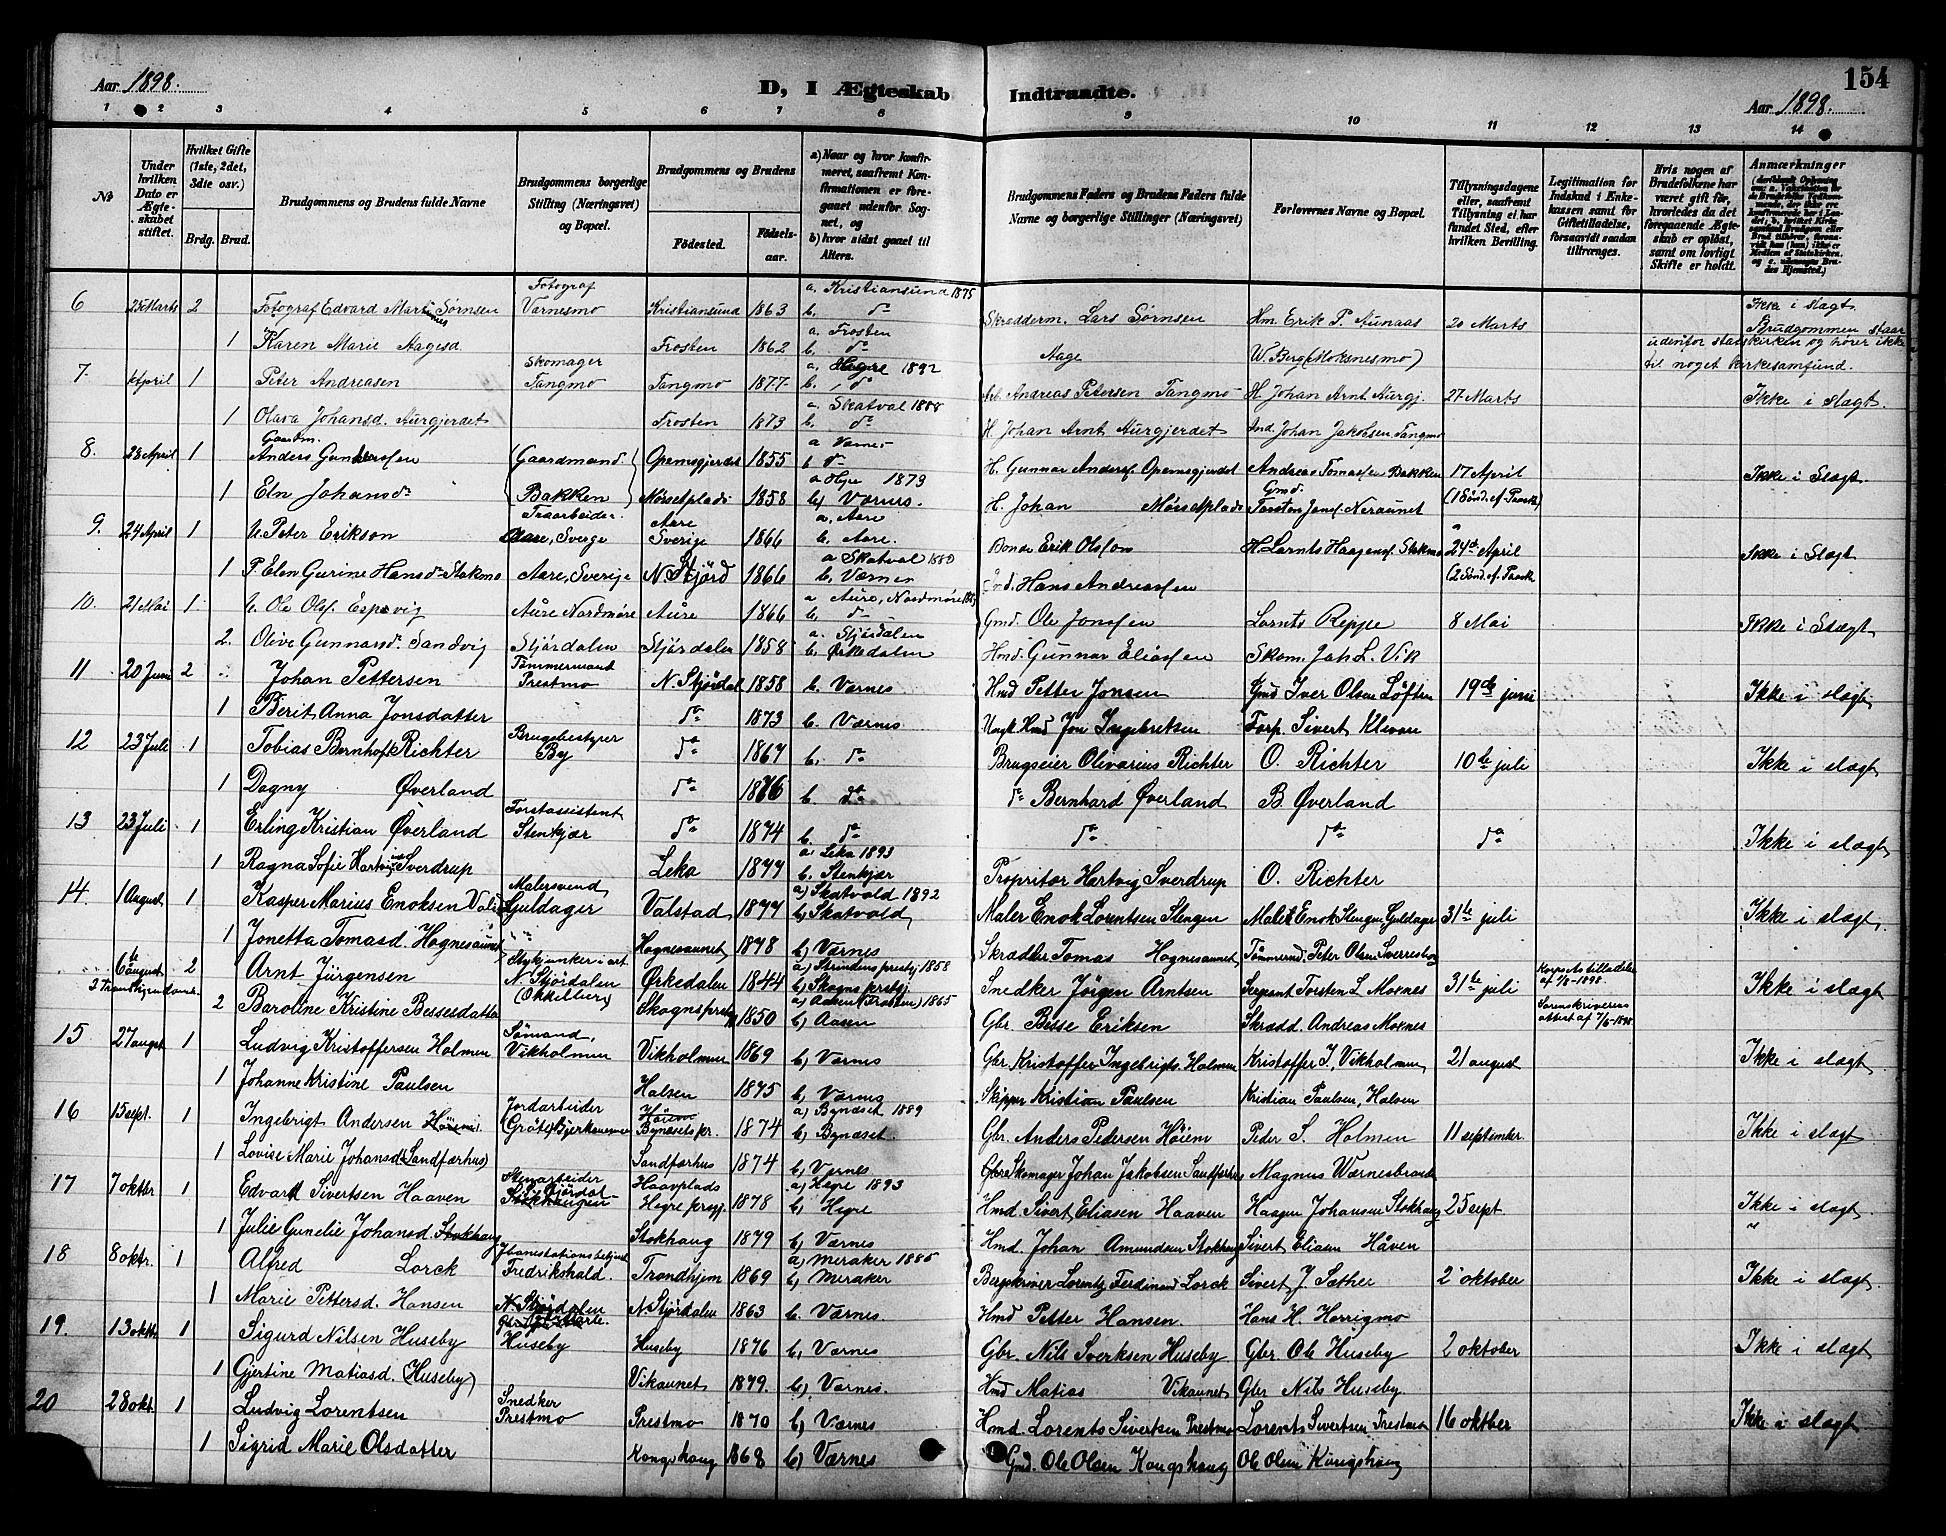 Aar 1898.
D, I Ægteskab Indtraadte.
154
Aar 1898.
1 2 3 4 5 6 7 8 9 10 11 12 13 14
№
Under hvilken Dato er Ægteskabet stiftet.
Hvilket Gifte (1ste, 2det, 3die osv.)
Brdg. Brud.
Brudgommens og Brudens fulde Navne
Brudgommens borgerlige Stilling (Næringsvei) og Bopæl.
Brudgommens og Brudens
Fødested. Fødselsaar.
a) Naar og hvor konfirmeret, saafremt Konfirmationen er foregaaet udenfor Sognet, og
b) hvor sidst gaaet til Alters.
Brudgommens Faders og Brudens Faders fulde Navne og borgerlige Stillinger (Næringsvei)
Forlovernes Navne og Bopæl.
Tillysningsdagene eller, saafremt Tillysning ei har fundet Sted, efter hvilken Bevilling.
Legitimation for Indskud i Enkekassen samt for Giftetilladelse, forsaavidt saadan tiltrænges.
Hvis nogen af Brudefolkene har været gift før, hvorledes da det foregaaende Ægteskab er opløst, samt om lovligt Skifte er holdt.
Anmærkninger
6 23 Marts 2 Fotograf Edvard Martinius Sørnsen Fotograf Værnesmo Kristiansund 1863 a. Kristiansund 1875 b. do Skrædderm. Lars Sørnsen Hm. Erik P. Aunaas 20 Marts Ikke i slægt.
1 Karen Marie Aagesd. Frosten 1862 a. Frosten b. do Aage W. Berg (Moksnesmo) Brudgommen staar udenfor statskirken og hører ikke til noget kirkesamfund.
7. April 1 Peter Andreasen Skomager Tangmo Tangmo 1877 a. Hegre 1892 b. do Arb. Andreas Petersen Tangmo H. Johan Arnt Aurgj. 27 Marts Ikke i slægt.
1 Olava Johansd. Aurgjerdet Frosten 1873 a. Skatval 1888 b. do H. Johan Arnt Aurgjerdet Ind. Johan Jakobsen Tangmo
8. 23 April 1 Gaardm. Anders Gunnerssen (Gaardmand. Opemsgjerdet 1855 a Værnes b do H. Gunnar Anders. Opemsgjerdet Andreas Tomassen Bakken 17 April Ikke i Slægt.
1 Eln Johansdr Bakken) Mørsetplads 1858 a Hegre 1873 b) Værnes. H. Johan Mørsetplads Gmd. Torsten Jons. Neraunet (1 Sønd. ef. Paask)
9. 24 April 1 U. Peter Erikson Træarbeider. Aare, Sverge Aare Sverige 1866 a. Aare b, Aare. Bonde Erik Olsson H. Larnts Haagens. Stokmo 24de April Ikke i Slægt.
1 P. Elen Gurine Hansdr Stokmo Aare, Sverige N. Stjørd 1866 a Skatval 1880 b, Værnes Ind. Hans Andreassen (2 Sønd. ef. Paask
10. 21 Mai 1. U. Ole Ols. Espevig Aure Nordmøre Aure 1866 a Aure, Nordmøre b, do Gmd. Ole Jonssen Lornts Reppe 8 Mai Ikke i Slægt
2. Olive Gunnarsd. Sandvig Stjørdalen Stjørdalen 1858 a. Stjørdalen b. Ørkedalen Hmd. Gunnar Eliassen Skom. Joh. L. Vik
11 20 Juni 2 Johan Pettersen Tømmermand Prestmo N. Stjørdal 1858 b. Værnes Hmd Petter Jonsen Gmd Iver Olsen Løften 19de juni Ikke i slægt
1 Berit Anna Jonsdatter do 1873 b. Værnes Ungk. Hmd Jon Ingebriksen Forp. Sivert Kleven
12 23 Juli 1 Tobias Bernhoft Richter Brugsbestyrer By do 1867 b. do Brugseier Olivarius Richter O. Richter 10de juli Ikke i slægt
1 Dagny Øverland do 1876 b. do do Bernhard Øverland B. Øverland
13 23 Juli 1 Erling Kristian Øverland Forstassistent Stenkjær do 1874 b. do do do do Ikke i slægt
1 Ragna Sofie Hartvigine Sverdrup Leka 1877 a. Leka 1893 b. Stenkjær Propritær Hartvig Sverdrup O. Richter
14. 1 August 1 Kasper Marius Enoksen Malersvend Guldager Valstad 1877 a) Skatvold 1892 b, Skatvold Maler Enok Lorentsen Slengen Maler Enok Slengen Guldager 31te juli Ikke i slægt
1 Jonetta Tomasd. Hognesaunet Hognesaunet 1878 b, Værnes Skrædder Tomas Hognesaunet Tømmermd. Peter Olsen Sverresborg
6te august 2 Arnt Jürgensen Stykjunker i art N. Stjørdalen Ørkedalen 1844 a) Strindens prestgj 1858 b, Skogns prestgj. Snedker Jörgen Arntsen Sergeant Torsten L. Moxnes 31te juli Korps As tilladelse af 1/8-1898 Ikke i slægt
2 Baroline Kristine Bessesdatter Skognsprestg 1850 a) Aasen (Frosten) 1865 b, Aasen Gbr. Besse Eriksen Skrædd. Andreas Moxnes Sorenskriverens attest af 7/6-1898
15 27 augst 1 Ludvig Kristoffersen Holmen Sømand, Vikholmen Vikholmen 1869 b, Værnes Gbr. Kristoffer Ingebrigts. Holmen Kristoffer I. Vikholmen 21 august Ikke i slægt
1 Johanne Kristine Paulsen Halsen 1875 b, Værnes Skipper Kristian Paulsen Kristian Paulsen, Halsen
16 15 sept. 1 Ingebrigt Andersen Høiem Jordarbeider Høiem Bynæsets pr. 1874 a) Bynæset 1889 b, Bynæset. Gbr. Anders Pedersen Høiem Peder S. Holmen 11 september. Ikke i slægt
1 Lovise Marie Johansdr (Sandfærhus) Sandfærhus 1874 b, Værnes Skomager Johan Jakobsen Sandfærhus Magnus Værnesbranden
17 7 oktbr 1 Edvard Sivertsen Haaven Stenarbeider Haavplads Hegre prgj. 1878 a) Hegre 1893 b, Hegre Hmd. Sivert Eliasen Haaven Haagen Johansen Stokhaug 25 sept Ikke i slægt.
1 Julie Gunelie Johansd. Stokhaug Stokhaug 1879 b, Værnes Hmd. Johan Amundsen Stokhaug Sivert Eliasen Håven
18 8 oktr. 1 Alfred Lorck Jbanestationsbetjent Fredrikshald. Trondhjem 1869 a) Meraker 1885 b, Meraker Bergskriver Lorentz Ferdinand Lorck Sivert J. Sæther 2 oktober Ikke i slægt
1 Marie Pettersd. Hansen N. Stjørdalen N. Stjørdalen 1863 b. Værnes. Hmd Petter Hansen. Hans H. Horrigmo
19. 13 oktbr 1 Sigurd Nilsen Huseby Huseby Huseby 1876 b, Værnes Gbr. Nils Sverksen Huseby Gbr. Ole Huseby 2 oktober Ikke i slægt
1 Gjertine Matiasd. (Huseby) Vikaunet 1879. b, Værnes. Hmd Matias Vikaunet Gbr Nils Huseby.
20 28 okt. 1 Ludvig Lorentsen Snedker Prestmo Prestmo 1870 b, Værnes Hmd. Lorents Sivertsen Prestmo Lorents Sivertsen Prestmo 16 oktber Ikke i slægt
1 Sigrid Marie Olsdatter Kongshaug 1868 b) Værnes Gmd. Ole Olsen Kongshaug Ole Olsen Kongshaug